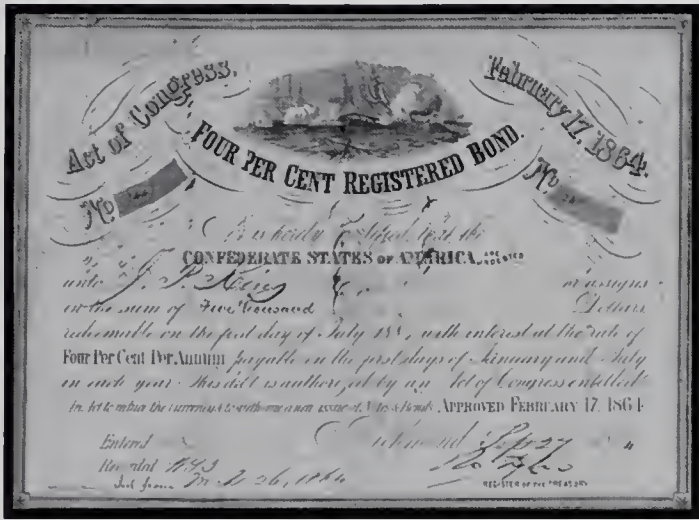 Act of Congress,
February 17, 1864.
FOUR PER CENT REGISTERED BOND.
No
No
It is hereby Certified, that the
CONFEDERATE STATES OF AMERICA,
unto J. P. or assigns
in the sum of Five Thousand Dollars
redeemable on the first day of July with interest at the rate of
Four Per Cent Per Annum payable on the first days of January and July
in each year. This debt is authorized by an Act of Congress entitled
An Act to reduce the currency & to authorize a new issue of Notes & Bonds APPROVED FEBRUARY 17, 1864
Entered Richmond
Recorded
Int from 26, 1864 REGISTER OF THE TREASURY